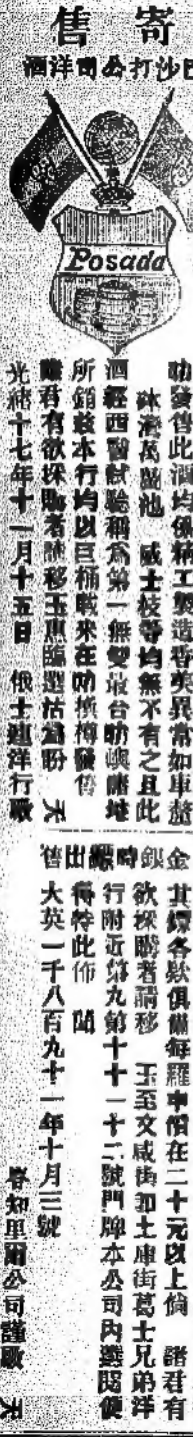 寄售
巴沙打公司洋酒
Posada
叻發售此酒均係精工製造香美異常如車厘
砵 濟萬蘭池 威士枝等均無不有之且此
酒經西醫試驗稱爲第一無雙最合叻嶼諸埠
所銷茲本行均以巨桶載來在叻換樽發售
諸君有欲採購者請移玉惠臨選沽爲盼 天
光緒十七年十一月十五日 俄士連洋行啟
金銀時鏢出售
其鏢各欵俱備每羅車價在二十元以上倘 諸君有
欲採購者請移 玉至文咸街卽土庫街葛士兄弟洋
行附近第九第十十一十二號門牌本公司內選閱便
得特此佈 聞
大英一千八百九十一年十月三號
知里爾公司謹啟 天